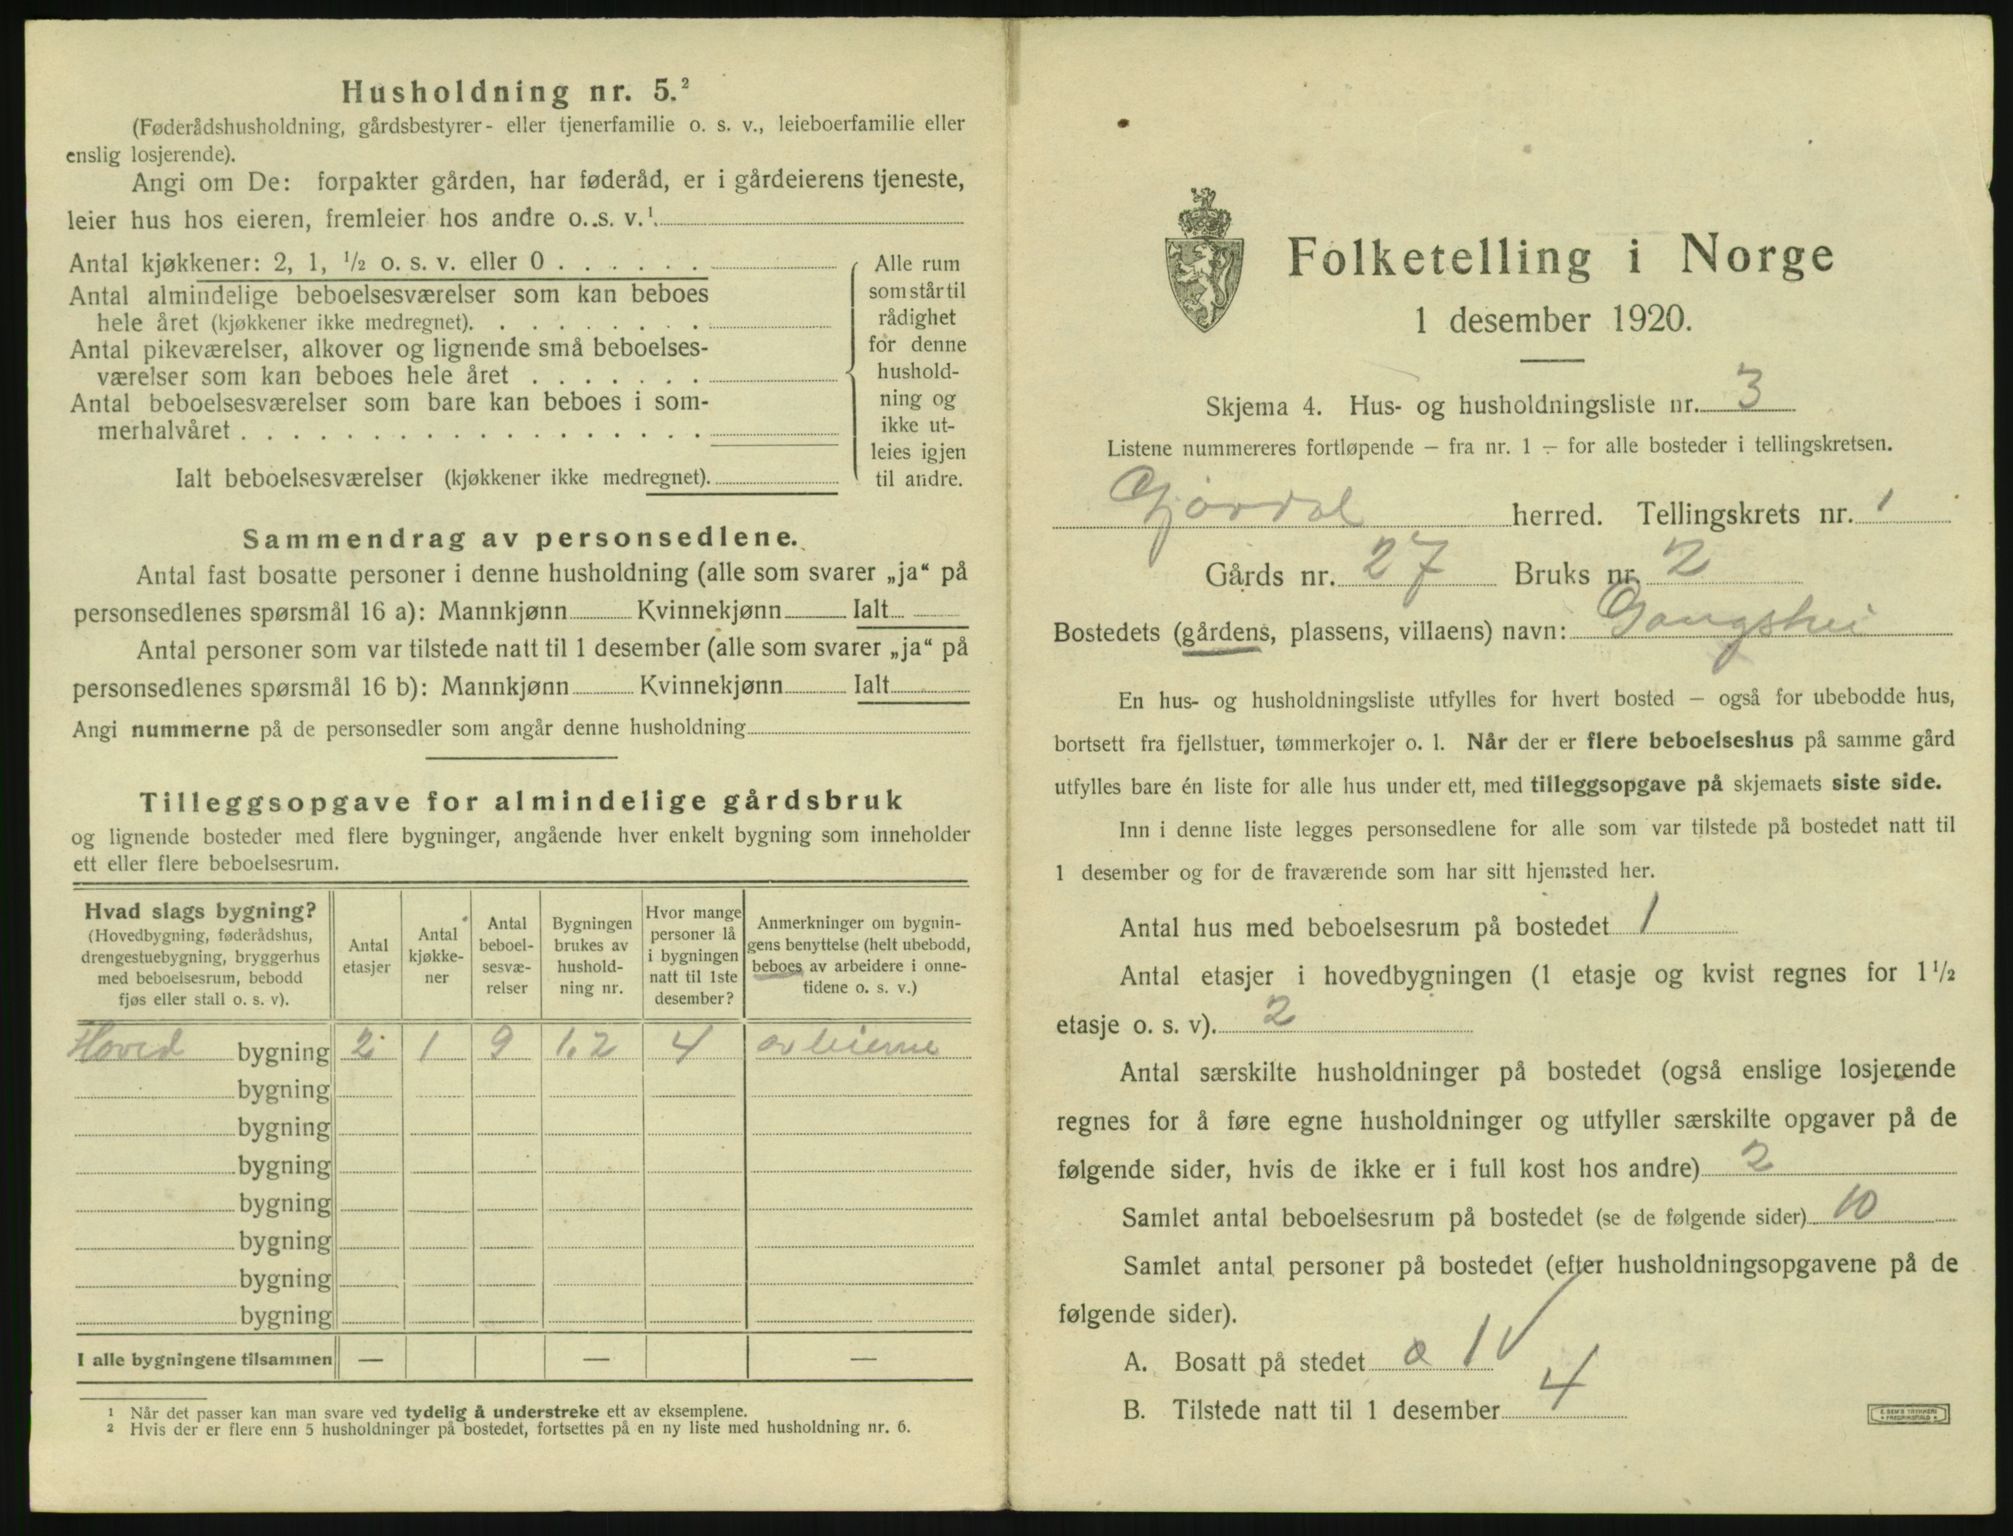 Husholdning nr. 5.²
(Føderådshusholdning, gårdsbestyrer- eller tjenerfamilie o. s. v., leieboerfamilie eller
enslig losjerende).
Angi om De: forpakter gården, har føderåd, er i gårdeierens tjeneste,
leier hus hos eieren, fremleier hos andre o. s. v.¹
Antal kjøkkener: 2, 1, ½ o. s. v. eller 0 . . . . . .
Antal almindelige beboelsesværelser som kan beboes
hele året (kjøkkener ikke medregnet). . . . . . . . .
Antal pikeværelser, alkover og lignende små beboelses-
værelser som kan beboes hele året . . . . . . .
Antal beboelsesværelser som bare kan beboes i som-
merhalvåret . . . . . . . . . . . . . . . . . .
Ialt beboelsesværelser (kjøkkener ikke medregnet).
Alle rum
som står til
rådighet
for denne
hushold-
ning og
ikke ut-
leies igjen
til andre.
Sammendrag av personsedlene.
Antal fast bosatte personer i denne husholdning (alle som svarer „ja“ på
personsedlenes spørsmål 16 a): Mannkjønn Kvinnekjønn Ialt
Antal personer som var tilstede natt til 1 desember (alle som svarer „ja“ på
personsedlenes spørsmål 16 b): Mannkjønn Kvinnekjønn Ialt
Angi nummerne på de personsedler som angår denne husholdning
Tilleggsopgave for almindelige gårdsbruk
og lignende bosteder med flere bygninger, angående hver enkelt bygning som inneholder
ett eller flere beboelsesrum.
Hvad slags bygning?
(Hovedbygning, føderådshus,
drengestuebygning, bryggerhus
med beboelsesrum, bebodd
fjøs eller stall o. s. v).
Antal
etasjer
Antal
kjøkke-
ner
Antal
beboel-
sesvæ-
relser
Bygningen
brukes av
hushold-
ning nr.
Hvor mange
personer lå
i bygningen
natt til 1ste
desember?
Anmerkninger om bygnin-
gens benyttelse (helt ubebodd,
beboes av arbeidere i onne-
tidene o. s. v.)
Hoved bygning 2 1 9 1.2 4 av leierne
bygning
bygning
bygning
bygning
bygning
bygning
bygning
I alle bygningene tilsammen — — —
¹ Når det passer kan man svare ved tydelig å understreke ett av eksemplene.
² Hvis der er flere enn 5 husholdninger på bostedet, fortsettes på en ny liste med husholdning nr. 6.
Folketelling i Norge
1 desember 1920.
Skjema 4. Hus- og husholdningsliste nr. 3
Listene nummereres fortløpende – fra nr. 1 – for alle bosteder i tellingskretsen.
herred. Tellingskrets nr. 1
Gårds nr. 27 Bruks nr. 2
Bostedets (gårdens, plassens, villaens) navn:
En hus- og husholdningsliste utfylles for hvert bosted – også for ubebodde hus,
bortsett fra fjellstuer, tømmerkojer o. l. Når der er flere beboelseshus på samme gård
utfylles bare én liste for alle hus under ett, med tilleggsopgave på skjemaets siste side.
Inn i denne liste legges personsedlene for alle som var tilstede på bostedet natt til
1 desember og for de fraværende som har sitt hjemsted her.
Antal hus med beboelsesrum på bostedet 1
Antal etasjer i hovedbygningen (1 etasje og kvist regnes for 1½
etasje o. s. v). 2
Antal særskilte husholdninger på bostedet (også enslige losjerende
regnes for å føre egne husholdninger og utfyller særskilte opgaver på de
følgende sider, hvis de ikke er i full kost hos andre) 2
Samlet antal beboelsesrum på bostedet (se de følgende sider) 10
Samlet antal personer på bostedet (efter husholdningsopgavene på de
følgende sider).
A. Bosatt på stedet
B. Tilstede natt til 1 desember 4